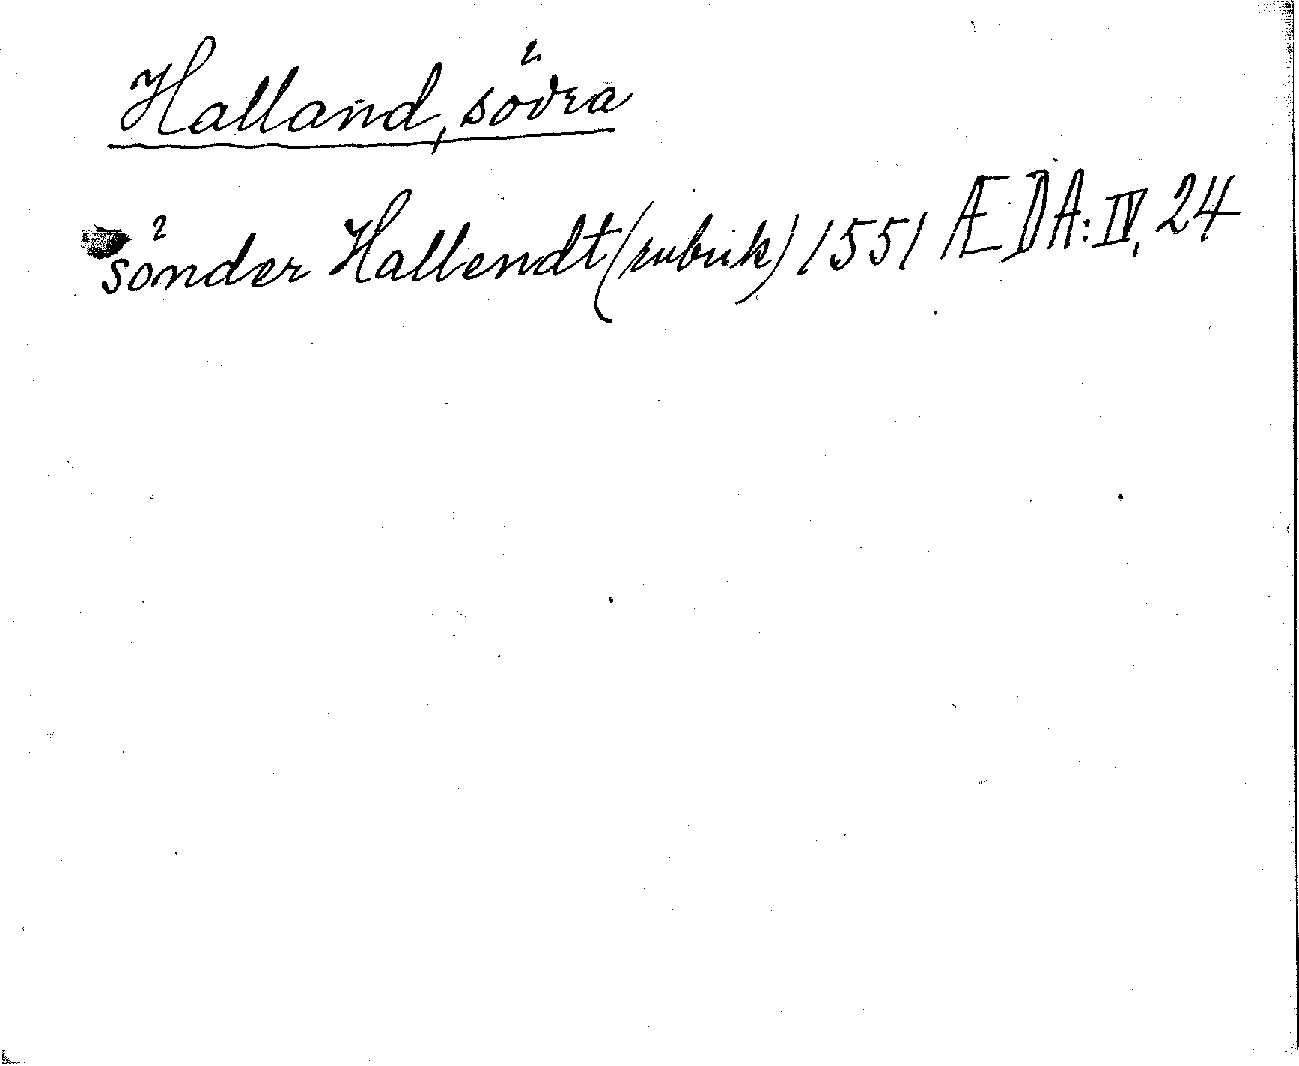 Halland, södra
sönder Hallendt (rubrik) 1551 ÆDA: IV, 24